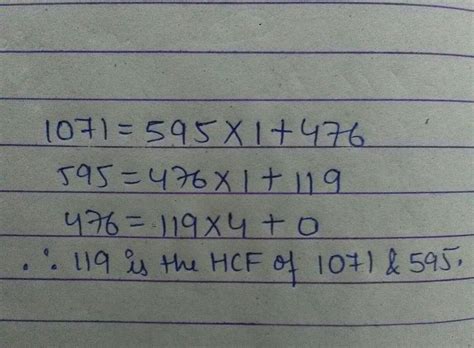 1071 = 595 × 1 + 476
595 = 476 × 1 + 119
476 = 119 × 4 + 0
∴ 119 is the HCF of 1071 & 595.